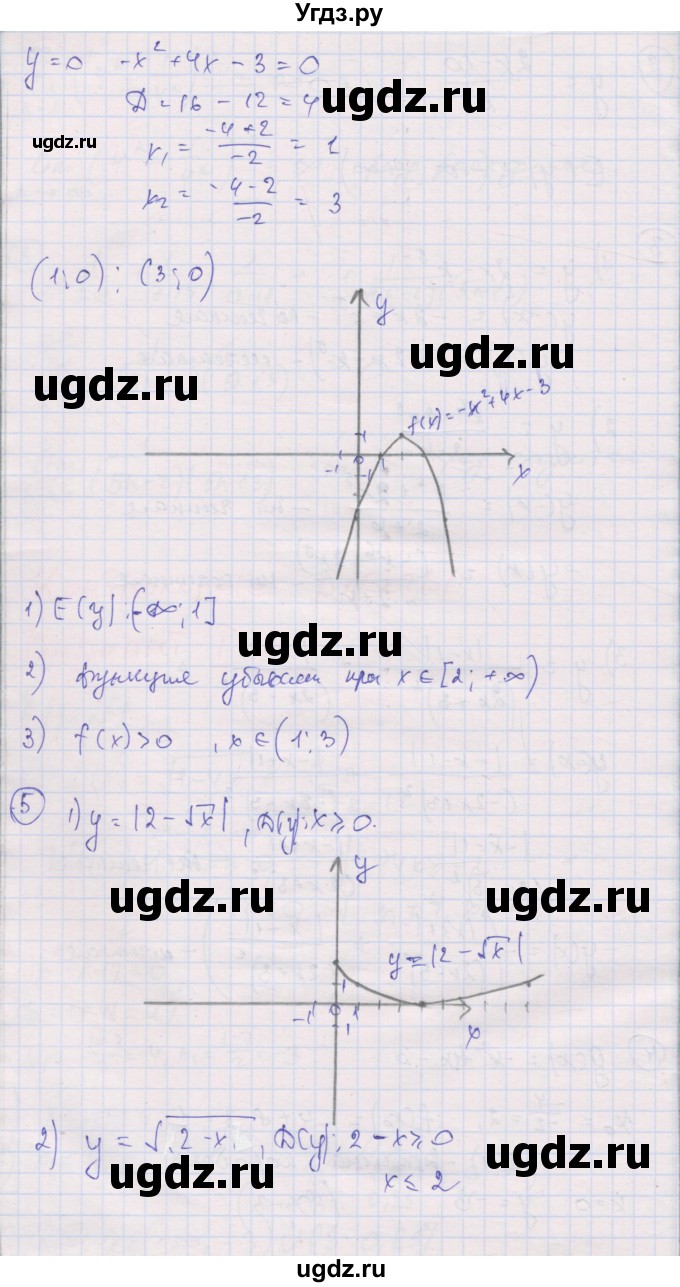 Угдз.ру
y=0 -x²+4x-3=0
D=16-12=4
ugdz.ru
x₁ = (-4+2)/(-2) = 1
x₂ = (-4-2)/(-2) = 3
(1;0); (3;0)
y
ugdz.ru
ugdz.ru
f(x)=-x²+4x-3
1
-1 0 1 x
-1
1) E(y):(-∞;1]
ugdz.ru
2) функция убывает при x∈[2;+∞)
3) f(x)>0, x∈(1;3)
5 1) y=|2-√x|, D(y):x≥0.
y
ugdz.ru ugdz.ru
y=|2-√x|
1
-1 0 1
-1 x
2) y=√(2-x), D(y):2-x≥0
ugdz.ru ugdz.ru
x≤2
ugdz.ru